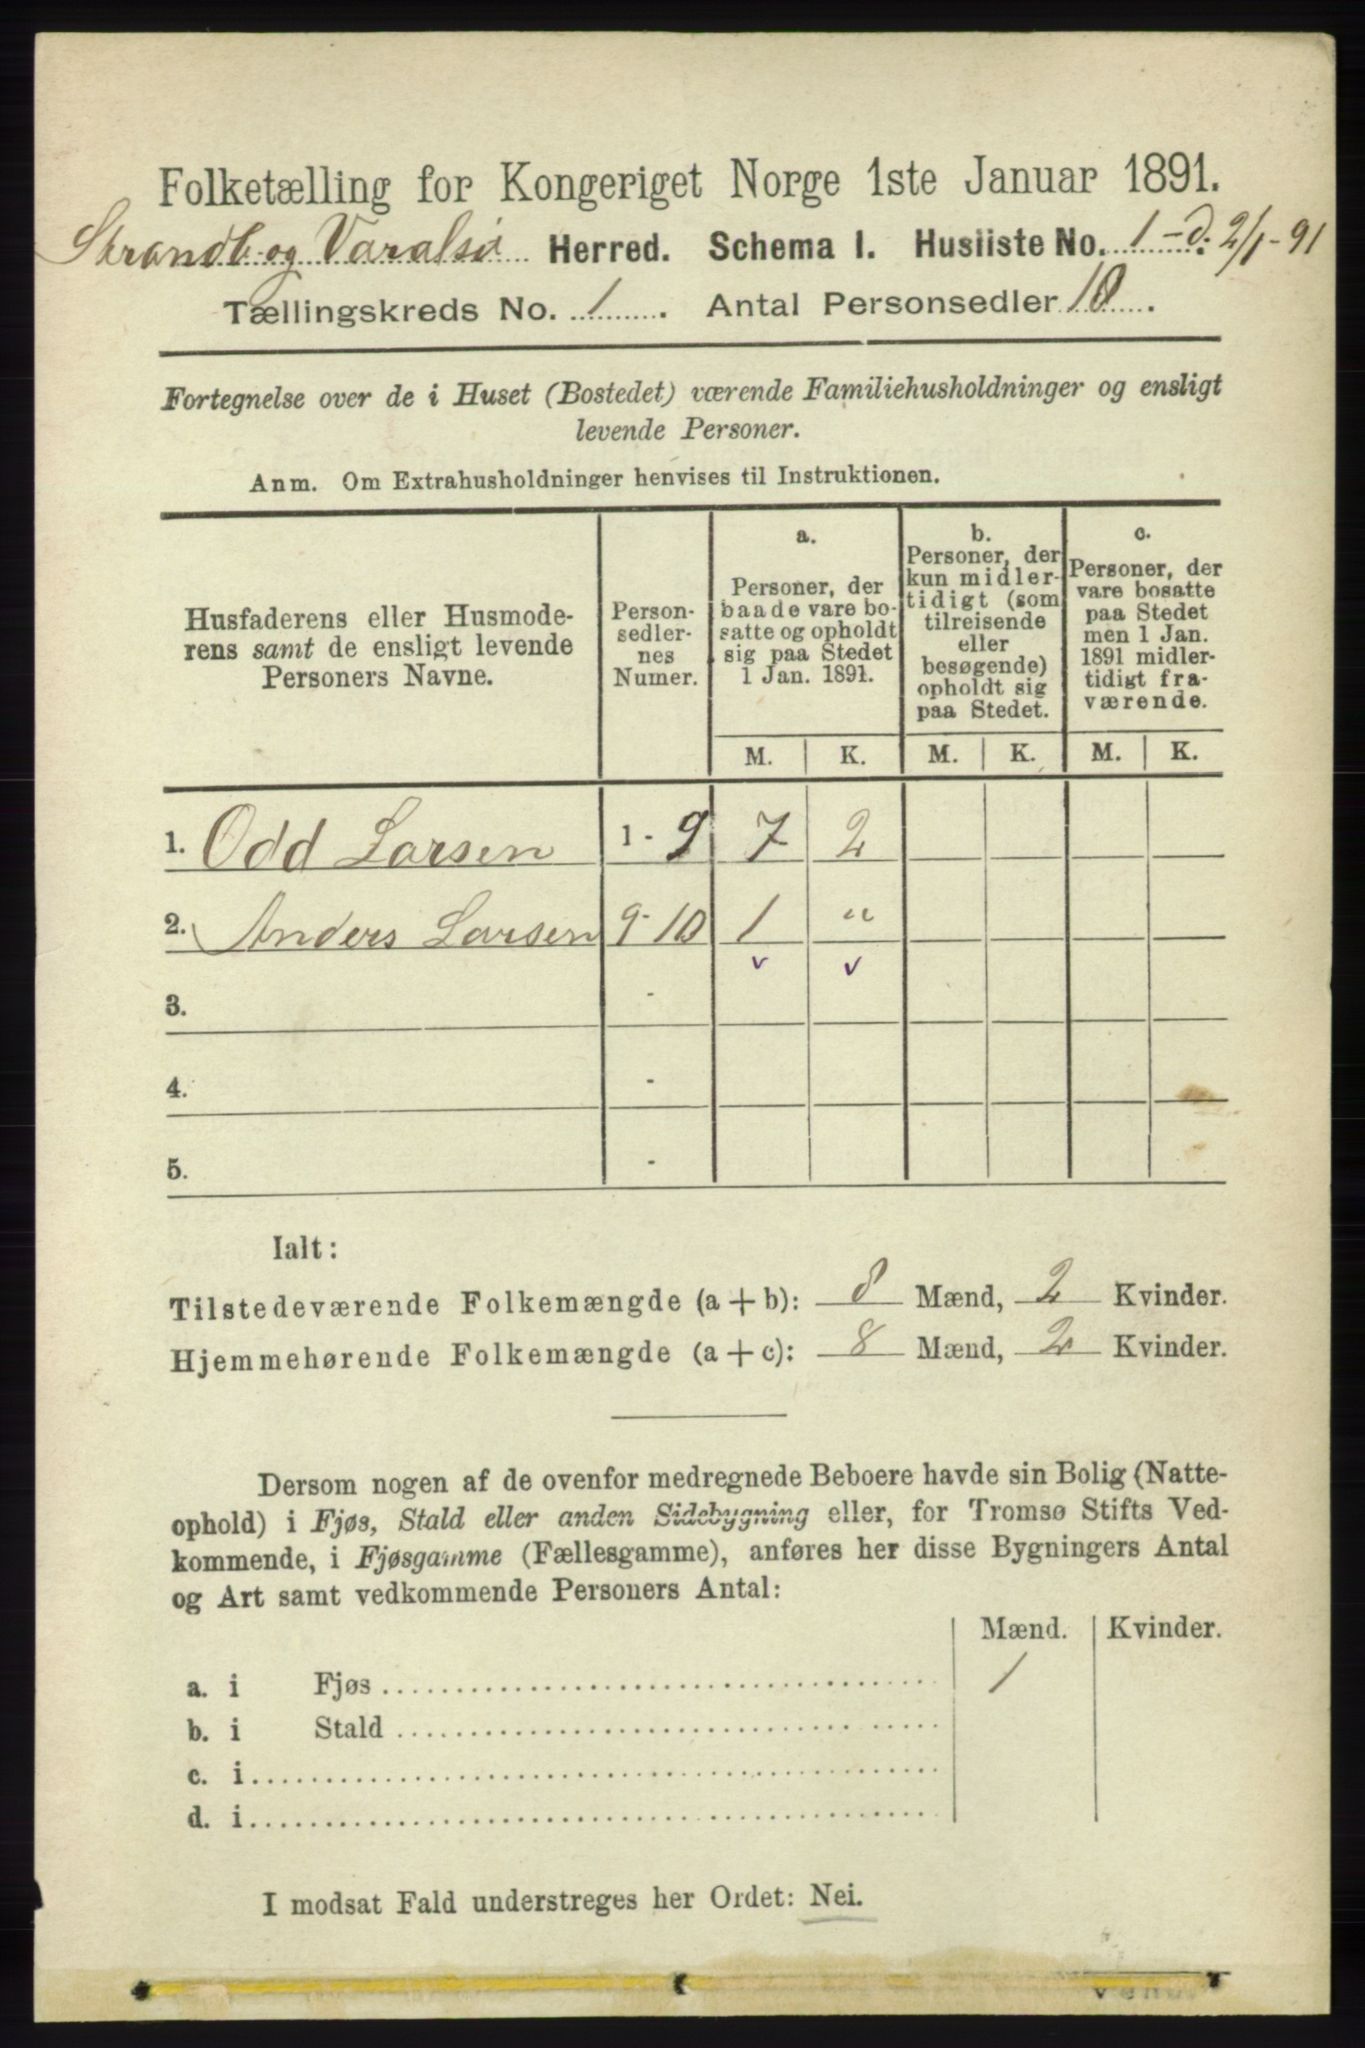 Folketælling for Kongeriget Norge 1ste Januar 1891.
Strandb. og Varalsø Herred. Schema I. Husliste No. 1 - d. 2/1 - 91
Tællingskreds No. 1. Antal Personsedler 10.
Fortegnelse over de i Huset (Bostedet) værende Familiehusholdninger og ensligt
levende Personer.
Anm. Om Extrahusholdninger henvises til Instruktionen.
Husfaderens eller Husmode-
rens samt de ensligt levende
Personers Navne.
Person-
sedler-
nes
Numer.
a.
Personer, der
baade vare bo-
satte og opholdt
sig paa Stedet
1 Jan. 1891.
b.
Personer, der
kun midler-
tidigt (som
tilreisende
eller
besøgende)
opholdt sig
paa Stedet.
c.
Personer, der
vare bosatte
paa Stedet
men 1 Jan.
1891 midler-
tidigt fra-
værende.
M. K. M. K. M. K.
1. Odd Larsen 1 - 9 7 2
2. Anders Larsen 9 - 10 1 "
v v
3. -
4. -
5. -
Ialt:
Tilstedeværende Folkemængde (a + b): 8 Mænd, 2 Kvinder.
Hjemmehørende Folkemængde (a + c): 8 Mænd, 2 Kvinder.
Dersom nogen af de ovenfor medregnede Beboere havde sin Bolig (Natte-
ophold) i Fjøs, Stald eller anden Sidebygning eller, for Tromsø Stifts Ved-
kommende, i Fjøsgamme (Fællesgamme), anføres her disse Bygningers Antal
og Art samt vedkommende Personers Antal:
Mænd. Kvinder.
a. i Fjøs 1
b. i Stald
c. i
d. i
I modsat Fald understreges her Ordet: Nei.